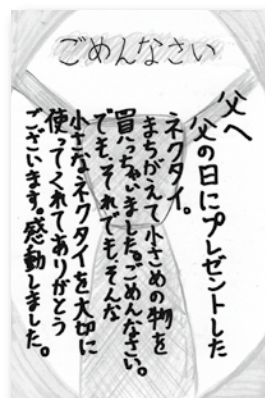 ごめんなさい
父へ
父の日にプレゼントした
ネクタイ。
まちがえて小さめの物を
買っちゃいました。ごめんなさい。
でも、それでも、そんな
小さなネクタイを大切に
使ってくれてありがとう
ございます。感動しました。